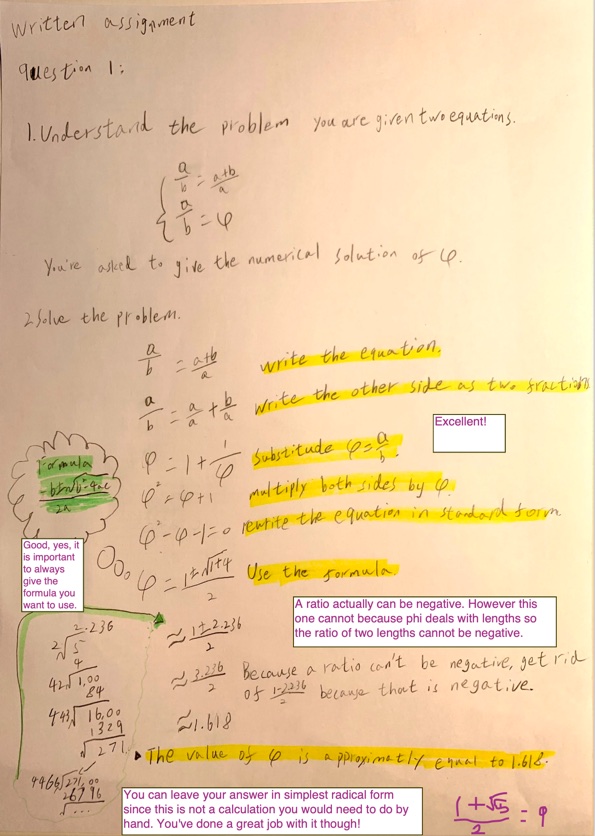 Written assignment
Question 1:
1.Understand the problem you are given two equations.
a/b = a+b/a
a/b = φ
You're asked to give the numerical solution of φ.
2 Solve the problem.
a/b = a+b/a write the equation.
a/b = a/a + b/a write the other side as two fractions
Excellent!
φ = 1 + 1/φ Substitude φ = a/b.
φ² = φ+1 multiply both sides by φ.
φ² - φ - 1 = 0 rewrite the equation in standard form
φ = 1±√1+4/2 Use the formula.
Formula
-b±√b²-4ac
2a
Good, yes, it
is important
to always
give the
formula you
want to use.
A ratio actually can be negative. However this
one cannot because phi deals with lengths so
the ratio of two lengths cannot be negative.
≈ 1±2.236/2
≈ 3.236/2 Because a ratio can't be negative, get rid
of 1-2.236/2 because that is negative.
≈1.618
2.236
2√5
4
42√1.00
84
443√16.00
1329
√271
4466√271.00
26796
√...
The value of φ is approximatly equal to 1.618.
You can leave your answer in simplest radical form
since this is not a calculation you would need to do by
hand. You've done a great job with it though!
1+√5/2 = φ